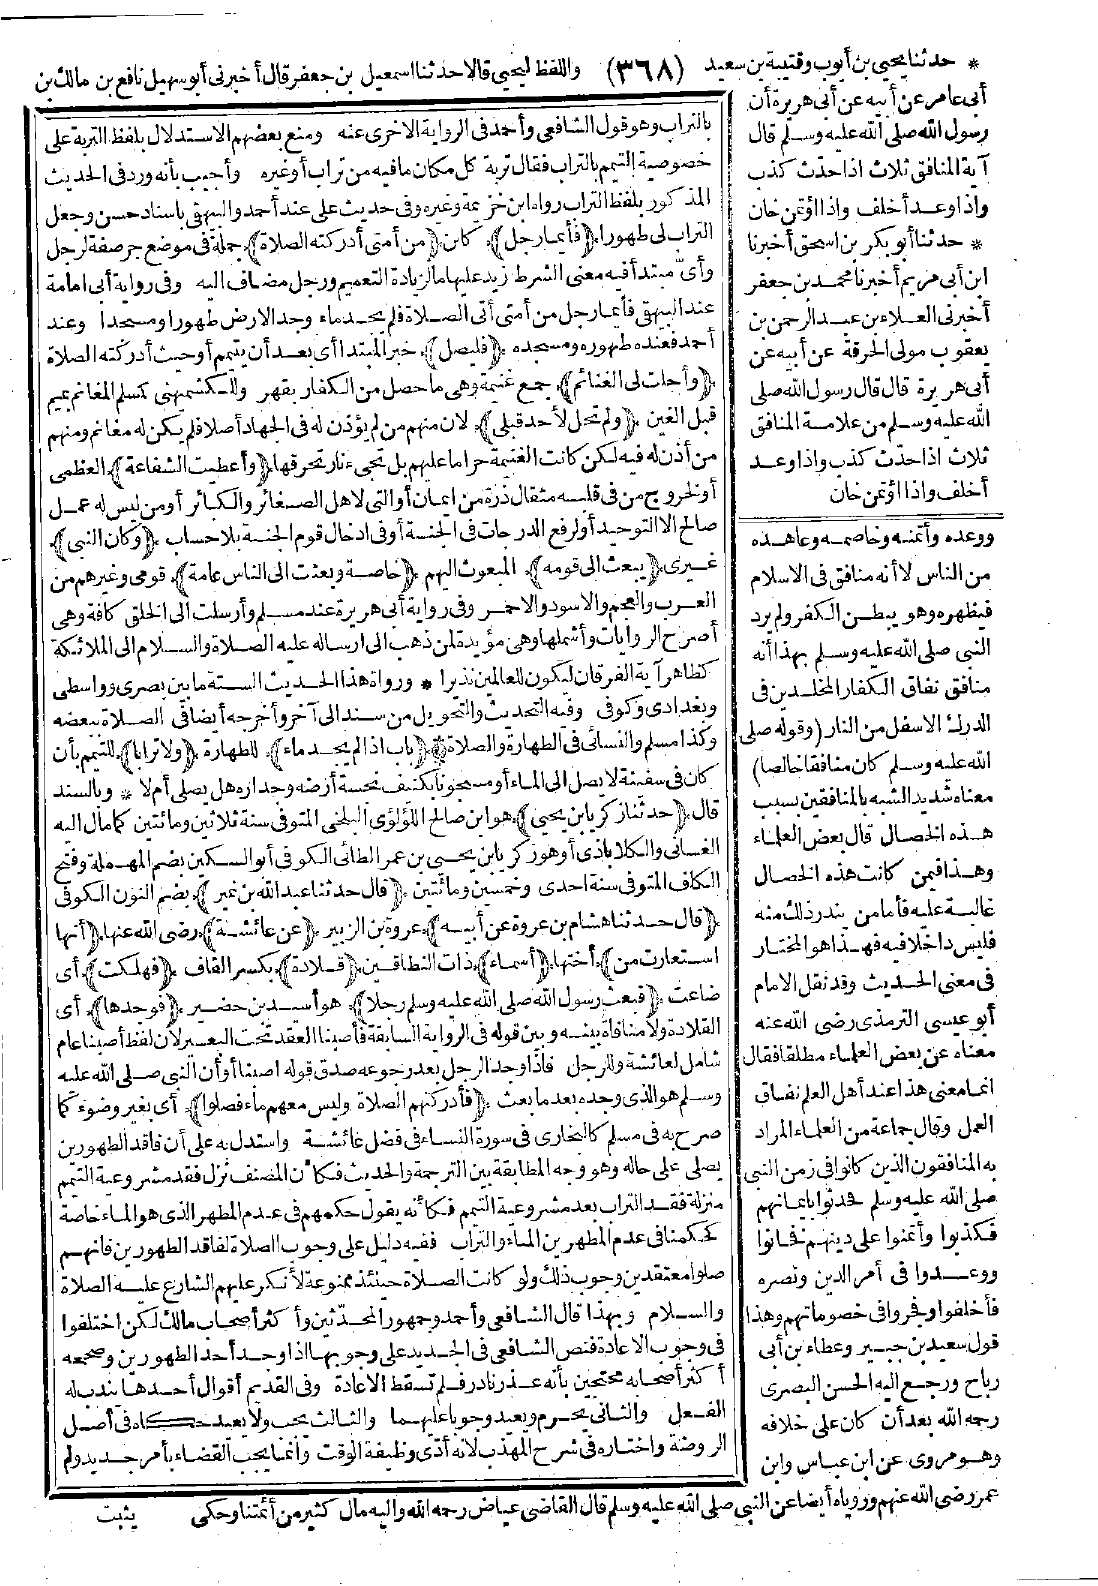 * حدثنا يحيى بن أيوب وقتيبة بن سعيد (٣٦٨) واللفظ ليحيى قالا حدثنا اسمعيل بن جعفر قال أخبرنى أبو سهيل نافع بن مالك بن
أبى عامر عن أبيه عن أبى هريرة أن
رسول الله صلى الله عليه وسلم قال
آية المنافق ثلاث اذا حدّث كذب
واذا وعد أخلف واذا اؤتمن خان
* حدثنا أبو بكر بن اسحق أخبرنا
ابن أبى مريم أخبرنا محمد بن جعفر
أخبرنى العلاء بن عبد الرحمن بن
يعقوب مولى الحرقة عن أبيه عن
أبى هريرة قال قال رسول الله صلى
الله عليه وسلم من علامة المنافق
ثلاث اذا حدّث كذب واذا وعد
أخلف واذا اؤتمن خان
ووعده وأتمنه وخاصمه وعاهده
من الناس لا أنه منافق فى الاسلام
فيظهره وهو يبطن الكفر ولم يرد
النبى صلى الله عليه وسلم بهذا أنه
منافق نفاق الكفار المخلدين فى
الدرك الاسفل من النار (وقوله صلى
الله عليه وسلم كان منافقا خالصا)
معناه شديد الشبه بالمنافقين بسبب
هذه الخصال قال بعض العلماء
وهذا فيمن كانت هذه الخصال
غالبة عليه فأما من يندر ذلك منه
فليس داخلا فيه فهذا هو المختار
فى معنى الحديث وقد نقل الامام
أبو عيسى الترمذى رضى الله عنه
معناه عن بعض العلماء مطلقا فقال
انما معنى هذا عند أهل العلم نفاق
العمل وقال جماعة من العلماء المراد
به المنافقون الذين كانوا فى زمن النبى
صلى الله عليه وسلم فحدثوا بايمانهم
فكذبوا وأتمنوا على دينهم فخانوا
ووعدوا فى أمر الدين ونصره
فأخلفوا وفجروا فى خصوماتهم وهذا
قول سعيد بن جبير وعطاء بن أبى
رباح ورجع اليه الحسن البصرى
رحمه الله بعد أن كان على خلافه
وهو مروى عن ابن عباس وابن
عمر رضى الله عنهم وروياه أيضا عن النبى صلى الله عليه وسلم قال القاضى عياض رحمه الله واليه مال كثير من أئمتنا وحكى
بالتراب وهو قول الشافعى وأحمد فى الرواية الاخرى عنه ومنع بعضهم الاستدلال بلفظ التربة على
خصوصية التيمم بالتراب فقال تربة كل مكان ما فيه من تراب أو غيره وأجيب بأنه ورد فى الحديث
المذكور بلفظ التراب رواه ابن خزيمة وغيره وفى حديث على عند أحمد والبيهقى باسناد حسن وجعل
التراب لى طهورا. ﴿فأيما رجل﴾ كائن ﴿من أمتى أدركته الصلاة﴾ جملة فى موضع جر صفة لرجل
وأىّ مبتدأ فيه معنى الشرط زيد عليها ما لزيادة التعميم ورجل مضاف اليه وفى رواية أبى امامة
عند البيهقى فأيما رجل من أمتى أتى الصلاة فلم يجد ماء وجد الارض طهورا ومسجدا وعند
أحمد فعنده طهوره ومسجده ﴿فليصل﴾ خبر المبتدا أى بعد أن يتيمم أو حيث أدركته الصلاة
﴿وأحلت لى الغنائم﴾ جمع غنيمة وهى ما حصل من الكفار بقهر وللكشميهنى كمسلم المغانم بميم
قبل الغين ﴿ولم تحل لأحد قبلى﴾ لان منهم من لم يؤذن له فى الجهاد أصلا فلم يكن له مغانم ومنهم
من أذن له فيه لكن كانت الغنيمة حراما عليهم بل تجىء نار تحرقها ﴿وأعطيت الشفاعة﴾ العظمى
أو لخروج من فى قلبه مثقال ذرة من ايمان أو التى لاهل الصغائر والكبائر أو من ليس له عمل
صالح الا التوحيد أو لرفع الدرجات فى الجنة أو فى ادخال قوم الجنة بلا حساب ﴿وكان النبى﴾
غيرى ﴿يبعث الى قومه﴾ المبعوث اليهم ﴿خاصة وبعثت الى الناس عامة﴾ قومى وغيرهم من
العرب والعجم والاسود والاحمر وفى رواية أبى هريرة عند مسلم وأرسلت الى الخلق كافة وهى
أصرح الروايات وأشملها وهى مؤيدة لمن ذهب الى ارساله عليه الصلاة والسلام الى الملائكة
كظاهر آية الفرقان ليكون للعالمين نذيرا * ورواة هذا الحديث الستة ما بين بصرى وواسطى
وبغدادى وكوفى وفيه التحديث والتحويل من سند الى آخر وأخرجه أيضا فى الصلاة ببعضه
وكذا مسلم والنسائى فى الطهارة والصلاة * ﴿باب اذا لم يجد ماء﴾ للطهارة ﴿ولا ترابا﴾ للتيمم بأن
كان فى سفينة لا يصل الى الماء أو مسجونا بكنيف نجسة أرضه وجداره هل يصلى أم لا * وبالسند
قال ﴿حدثنا زكريا بن يحيى﴾ هو ابن صالح اللؤلؤى البلخى المتوفى سنة ثلاثين ومائتين كما مال اليه
الغسانى والكلاباذى أو هو زكريا بن يحيى بن عمر الطائى الكوفى أبو السكين بضم المهملة وفتح
الكاف المتوفى سنة احدى وخمسين ومائتين ﴿قال حدثنا عبد الله بن نمير﴾ بضم النون الكوفى
﴿قال حدثنا هشام بن عروة عن أبيه﴾ عروة بن الزبير ﴿عن عائشة﴾ رضى الله عنها ﴿أنها
استعارت من﴾ أختها ﴿أسماء﴾ ذات النطاقين ﴿قلادة﴾ بكسر القاف ﴿فهلكت﴾ أى
ضاعت ﴿فبعث رسول الله صلى الله عليه وسلم رجلا﴾ هو أسيد بن حضير ﴿فوجدها﴾ أى
القلادة ولا منافاة بينه وبين قوله فى الرواية السابقة فأصبنا العقد تحت البعير لأن لفظ أصبنا عام
شامل لعائشة وللرجل فاذا وجد الرجل بعد رجوعه صدق قوله اصبنا أو أن النبى صلى الله عليه
وسلم هو الذى وجده بعد ما بعث ﴿فأدركتهم الصلاة وليس معهم ماء فصلوا﴾ أى بغير وضوء كما
صرح به فى مسلم كالبخارى فى سورة النساء فى فضل عائشة واستدل به على أن فاقد الطهورين
يصلى على حاله وهو وجه المطابقة بين الترجمة والحديث فكأن المصنف نزل فقد مشروعية التيمم
منزلة فقد التراب بعد مشروعية التيمم فكأنه يقول حكمهم فى عدم المطهر الذى هو الماء خاصة
كحكمنا فى عدم المطهرين الماء والتراب ففيه دليل على وجوب الصلاة لفاقد الطهورين فانهم
صلوا معتقدين وجوب ذلك ولو كانت الصلاة حينئذ ممنوعة لأنكر عليهم الشارع عليه الصلاة
والسلام وبهذا قال الشافعى وأحمد وجمهور المحدّثين وأكثر أصحاب مالك لكن اختلفوا
فى وجوب الاعادة فنص الشافعى فى الجديد على وجوبها اذا وجد أحد الطهورين وصححه
أكثر أصحابه محتجين بأنه عذر نادر فلم تسقط الاعادة وفى القديم أقوال أحدها يندب له
الفعل والثانى يحرم ويعيد وجوبا عليهما والثالث يجب ولا يعيد حكاه فى أصل
الروضة واختاره فى شرح المهذب لانه أدّى وظيفة الوقت وانما يجب القضاء بأمر جديد ولم
يثبت